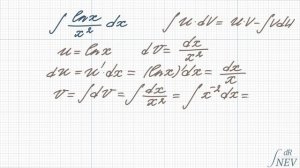 ∫ lnx/x² dx   ∫ u dv = uv - ∫ v du
u = lnx   dv = dx/x²
du = u'dx = (lnx)'dx = dx/x
v = ∫ dv = ∫ dx/x² = ∫ x⁻² dx =
∫ dR
NEV